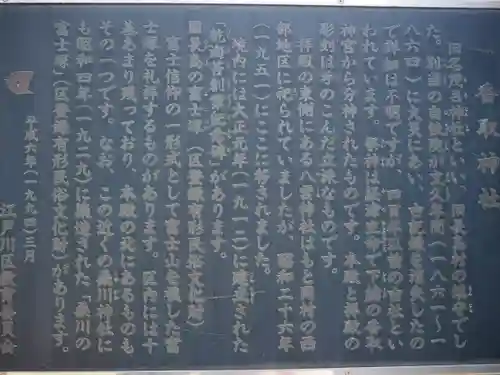 香取神社
旧名形名神社といい、旧長島村の鎮守でし
た。別当の自性院が文久年間（一八六一〜一
八六四）に火災にあい、古記録を消失したの
で詳細は不明ですが、四百年以前の古社とい
われています。祭神は経津主命で下総の香取
神宮から分神されたものです。本殿と拝殿の
彫刻は手のこんだ立派なものです。
拝殿の東側にある八雲神社はもと同村の西
部地区に祀られていましたが、昭和二十六年
（一九五一）にここに移されました。
境内には大正元年（一九一二）に建立された
「乾海苔創業記念碑」があります。
旧長島の富士塚（区登録有形民俗文化財）
富士信仰の一形式として富士山を模した富
士塚を礼拝するものがあります。区内には十
基あまり残っており、本殿の北にあるものも
その一つです。なお、この近くの桑川神社に
も昭和四年（一九二九）に築造された「桑川の
富士塚」（区登録有形民俗文化財）があります。
平成六年（一九九四）三月
江戸川区教育委員会